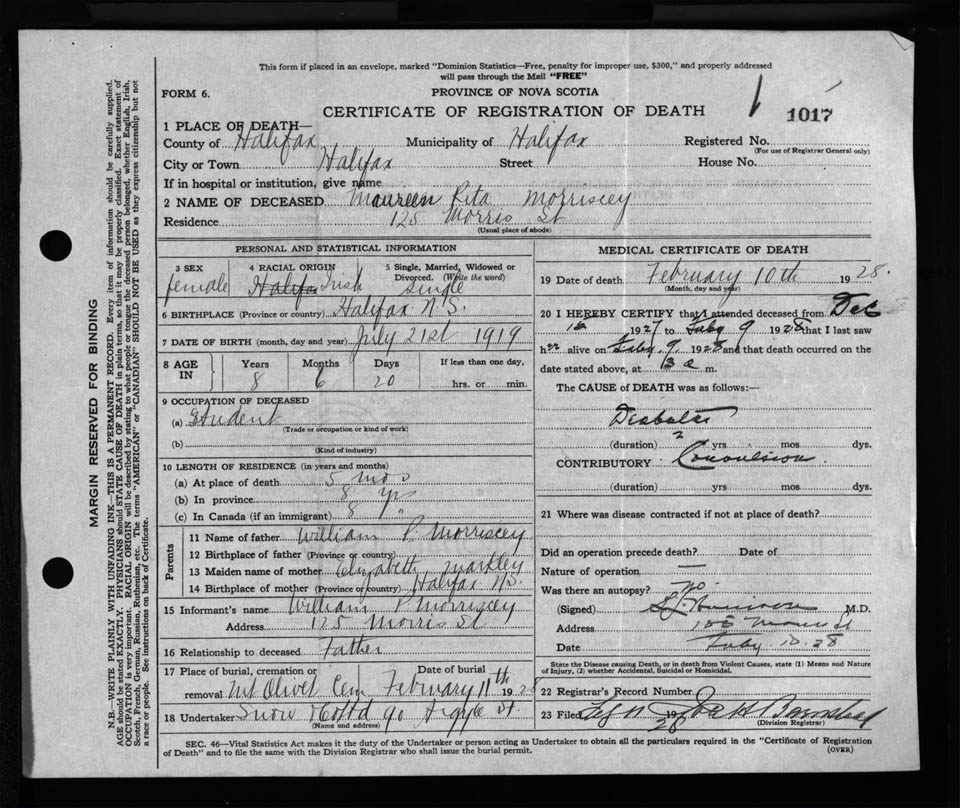 This form if placed in an envelope, marked "Dominion Statistics—Free, penalty for improper use, $300," and properly addressed
will pass through the Mail "FREE"
FORM 6.
PROVINCE OF NOVA SCOTIA
CERTIFICATE OF REGISTRATION OF DEATH
1017
1 PLACE OF DEATH—
County of Halifax Municipality of Halifax Registered No.
(For use of Registrar General only)
City or Town Halifax Street House No.
If in hospital or institution, give name
2 NAME OF DECEASED Maureen Rita Morriscey
Residence 125 Morris St
(Usual place of abode)
PERSONAL AND STATISTICAL INFORMATION
3 SEX 4 RACIAL ORIGIN 5 Single, Married, Widowed or Divorced. (Write the word)
female Halifax Irish Single
6 BIRTHPLACE (Province or country) Halifax N.S.
7 DATE OF BIRTH (month, day and year) July 21st 1919
8 AGE IN Years Months Days If less than one day,
8 6 20 hrs. or min.
9 OCCUPATION OF DECEASED
(a) Student
(Trade or occupation or kind of work)
(b)
(Kind of industry)
10 LENGTH OF RESIDENCE (in years and months)
(a) At place of death 5 mos
(b) In province 8 yrs
(c) In Canada (if an immigrant) 8 "
Parents
11 Name of father William P. Morriscey
12 Birthplace of father (Province or country)
13 Maiden name of mother Elizabeth Markley
14 Birthplace of mother (Province or country) Halifax N.S.
15 Informant's name William P. Morriscey
Address 125 Morris St
16 Relationship to deceased Father
17 Place of burial, cremation or removal Date of burial
Mt Olivet Cem February 11th 1928
18 Undertaker Snow & Co Ltd 90 Argyle St.
(Name and address)
MEDICAL CERTIFICATE OF DEATH
19 Date of death February 10th 1928.
(Month, day and year)
20 I HEREBY CERTIFY that I attended deceased from Dec
16 1927 to Feby 9 1928 that I last saw
her alive on Feby. 9 1928 and that death occurred on the
date stated above, at 3 a m.
The CAUSE of DEATH was as follows:—
Diabetes
(duration) 2 yrs mos dys.
CONTRIBUTORY Convulsion
(duration) yrs mos dys.
21 Where was disease contracted if not at place of death?
Did an operation precede death? Date of
Nature of operation —
Was there an autopsy? No.
(Signed) M.D.
Address 105 Morris St
Date Feby 10. 28
State the Disease causing Death, or in death from Violent Causes, state (1) Means and Nature of Injury, (2) whether Accidental, Suicidal or Homicidal.
22 Registrar's Record Number
23 Filed 1928
(Division Registrar)
SEC. 46—Vital Statistics Act makes it the duty of the Undertaker or person acting as Undertaker to obtain all the particulars required in the "Certificate of Registration
of Death" and to file the same with the Division Registrar who shall issue the burial permit.
(OVER)
MARGIN RESERVED FOR BINDING
N.B.—WRITE PLAINLY WITH UNFADING INK—THIS IS A PERMANENT RECORD. Every item of information should be carefully supplied.
AGE should be stated EXACTLY. PHYSICIANS should STATE CAUSE OF DEATH in plain terms, so that it may be properly classified. Exact statement of
OCCUPATION is very important. RACIAL ORIGIN will be described by stating to what people or tongue the deceased person belonged, whether English, Irish,
Scotch, French, German, Russian, Ruthenian, etc. The terms "AMERICAN" or "CANADIAN" SHOULD NOT BE USED as they express citizenship but not
a race or people. See instructions on back of Certificate.